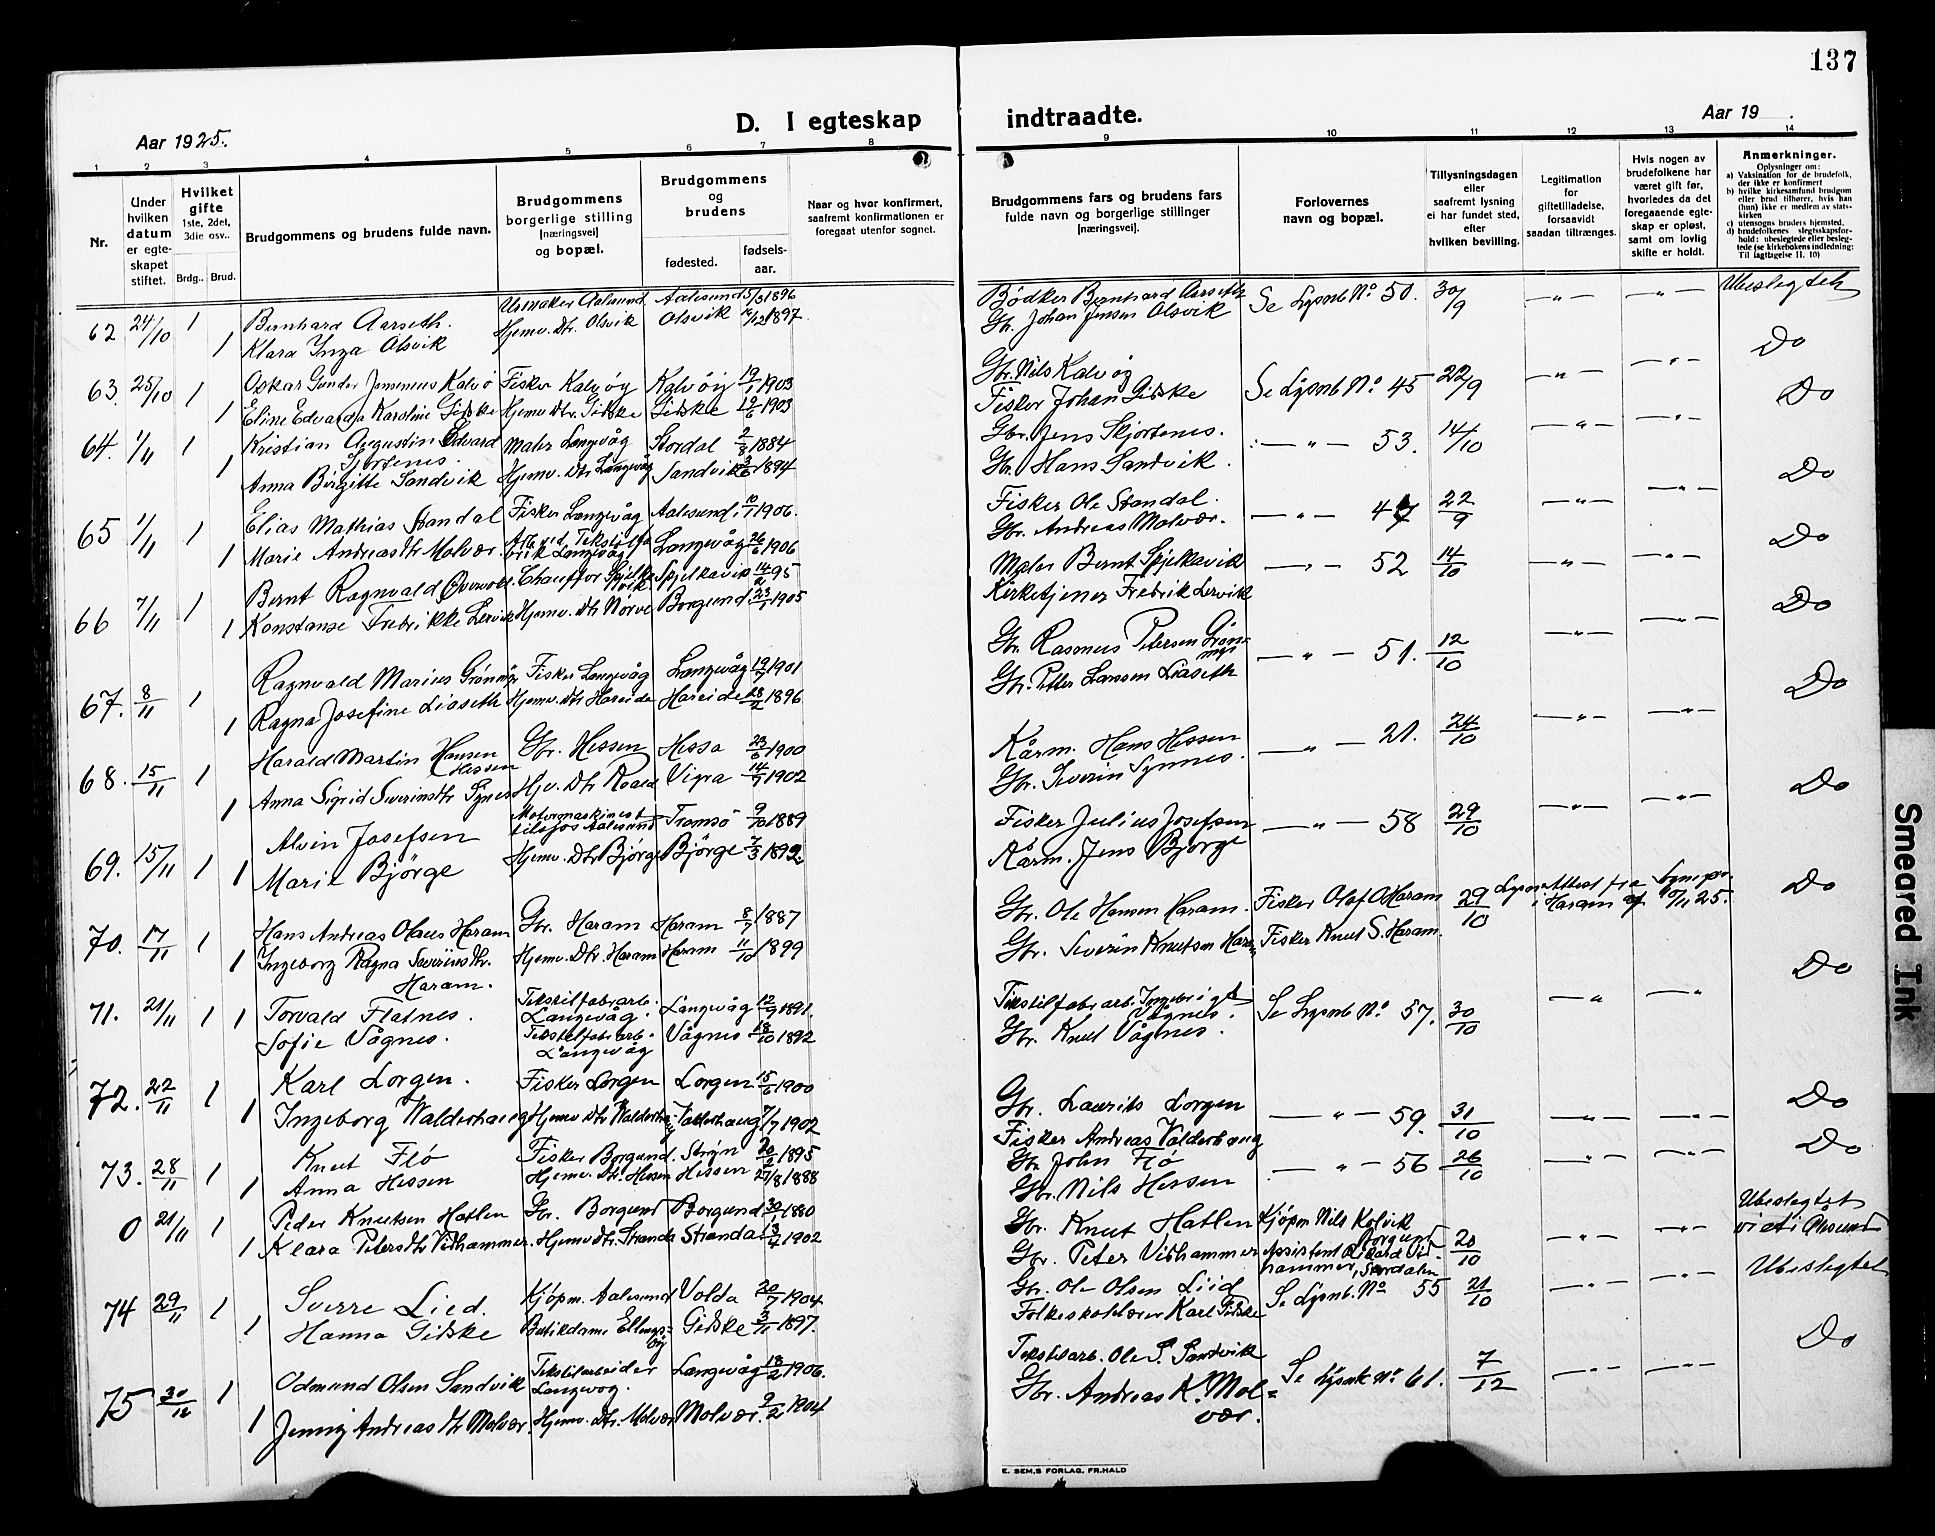 137
Aar 1925.
D. I egteskap indtraadte.
Aar 19
1 2 3 4 5 6 7 8 9 10 11 12 13 14
Nr.
Under hvilken datum er egteskapet stiftet.
Hvilket gifte 1ste, 2det, 3die osv..
Brdg.. Brud.
Brudgommens og brudens fulde navn.
Brudgommens borgerlige stilling [næringsvei] og bopæl.
Brudgommens og brudens
fødested.
fødsels-aar.
Naar og hvor konfirmert, saafremt konfirmationen er foregaat utenfor sognet.
Brudgommens fars og brudens fars fulde navn og borgerlige stillinger [næringsvei].
Forlovernes navn og bopæl.
Tillysningsdagen eller saafremt lysning ei har fundet sted, efter hvilken bevilling.
Legitimation for giftetilladelse, forsaavidt saadan tiltrænges.
Hvis nogen av brudefolkene har været gift før, hvorledes da det foregaaende egteskap er opløst, samt om lovlig skifte er holdt.
Anmerkninger.
Oplysninger om:
a) Vaksination for de brudefolk, der ikke er konfirmert
b) hvilke kirkesamfund brudgom eller brud tilhører, hvis han (hun) ikke er medlem av statskirken
c) utensogns brudens hjemsted.
d) brudefolkenes slegtsskapsforhold: ubeslegtede eller beslegtede (se kirkebokens indledning: Til iagttagelse 11. 10)
62 24/10 1 Bernhard Aarseth. Urmaker Aalesund Aalesund 5/3 1896 Bødker Bernhard Aarseth Se Lysnb No 50. 30/9 —"— —"— Ubeslegtet
1 Klara Inga Olsvik Hjemv. Dtr. Olsvik Olsvik 1897. Gbr. Johan Jensen Olsvik
Do
63. 25/10 1 Oskar Gunder Kalvø Fisker Kalvøy Kalvøy 19/1 1903 Gbr. Nils Kalvøy Se Lysnb No 45 22/9 —"— —"—
1 Eline Edvarda Karoline Gidske Hjemv. Dtr. Gidske Gidske 19/6 1903 Fisker Johan Gidske
Do
64. 1/11 1 Kristian Augustin Edvard Maler Langevåg Stordal 2/8 1884 Gbr. Jens Skjortenes. —"— 53. 14/10 —"— —"—
1 Anna Birgitte Sandvik Hjemv. Dtr Langevåg Sandvik 1894 Gbr. Hans Sandvik.
Do
65 1/11 1 Elias Mathias Standal Fisker Langevåg Aalesund 10/1 1906. Fisker Ole Standal. —"— 47 22/9 —"— —"—
1 Marie Andreasdtr Molvær. Arb. ved Tekstilfabrik Langevåg Langevåg 26/6 1906 Gbr. Andreas Molvær.
Do
66 7/11 1 Bernt Ragnvald Chauffør Spjelkavik Spjelkavik 14/2 95 Maler Bernt Spjelkavik —"— 52 14/10 —"— —"—
1 Konstanse Fredrikke Lervik Hjemv. Dtr Nørve Borgund 23/1 1905 Kirketjener Fredrik Lervik
Do
67. 8/11 1 Ragnvald Marius Fisker Langevåg Langevåg 1901 Gbr. Rasmus Petersen —"— 51. 12/10 —"— —"—
1 Ragna Josefine Liaseth Hjemv. Dtr Hareide Hareide 1896 Gbr. Petter Larssen Liaseth
Do
68. 15/11 1 Harald Martin Hansen Hessen Gbr. Hessen Hessa 23/6 1900 Kårm. Hans Hessen —"— 21. 24/10 —"— —"—
1 Anna Sigrid Severinsdtr Synes Hjv. Dtr Roald Vigra 14/7 1902 Gbr. Severin Synnes.
Do
69. 15/11 1 Alvin Josefsen Motormaskinist tilsjøs Aalesund Tromsø 9/10 1889 Fisker Julius Josefsen —"— 58 29/10 —"— —"—
1 Marie Bjørge Hjemv. Dtr Bjørge Bjørge 1892. Kårm. Jens Bjørge
Do
70. 17/11 1 Hans Andreas Olaus Haram Gbr. Haram Haram 8/7 1887 Gbr. Ole Hansen Haram. Fisker Olaf O Haram 29/10 Attest fra i Haram af 10/11 25.
1 Ingeborg Ragna Severinsdtr. Haram. Hjemv. Dtr. Haram Haram 11/10 1899 Gbr. Severin Knutsen Haram Fisker Knut S. Haram.
Do
71. 21/11 1 1 Torvald Flatnes. Tekstilfabrarb. Langevåg. Langevåg 12/9 1891. Tekstilfabrarb. Vågnes. Se Lysnb No 57. 30/10 —"— —"—
Sofie Vågnes. Tekstilfabrarb. Langevåg Vågnes 18/10 1892 Gbr. Knut Vågnes.
72. 22/11 1 Karl Lorgen. Fisker Lorgen Lorgen 15/6 1900 Gbr. Laurits Lorgen —"— 59. 31/10 —"— —"— Do
1 Ingeborg Valderhaug Hjemv Dtr Valderhaug Valderhaug 7/7 1902 Fisker Andreas Valderhaug
73. 28/11 1 Knut Flø Fisker Borgund. Stryn 1895 Gbr John Flø —"— 56 26/10 —"— —"— Do
1 Anna Hessen Hjemv. Dtr. Hessen Hessen 27/8 1888 Gbr. Nils Hessen
0 21/11 1 Peder Knutsen Hatlen Gbr. Borgund Borgund 1880 Gbr. Knut Hatlen Kjøpm Nils Kolvik Borgund 20/10 —"— —"— Ubeslegtet
1 Klara Petersdtr Vidhammer. Hjemv Dtr Stranda Stranda 13/4 1902 Gbr. Peter Vidhammer Assistent Vidhammer, Stordalen viet i
74 29/11 1 Sverre Lied. Kjøpm. Aalesund Volda 20/7 1904 Gbr. Ole Olsen Lied Se Lysnb. No 55 21/10 —"— —"— Ubeslegtet
1 Hanna Gidske Butikdame Ellingsøy Gidske 3/11 1897. Folkeskolelærer Karl Gidske
75 30/12 1 Odmund Olsen Sandvik Tekstilarbeider Langevåg. Langevåg 18/2 1906. Tekstilarb. Ole P. Sandvik Se Lysnb No 61. 7/12 —"— —"— Do
1 Jenny Andreasdtr Molvær. Hjemv. Dtr. Molvær Molvær. 9/2 1904 Gbr. Andreas K. Molvær.
E. SEM,S FORLAG, FR.HALD
Smeared Ink